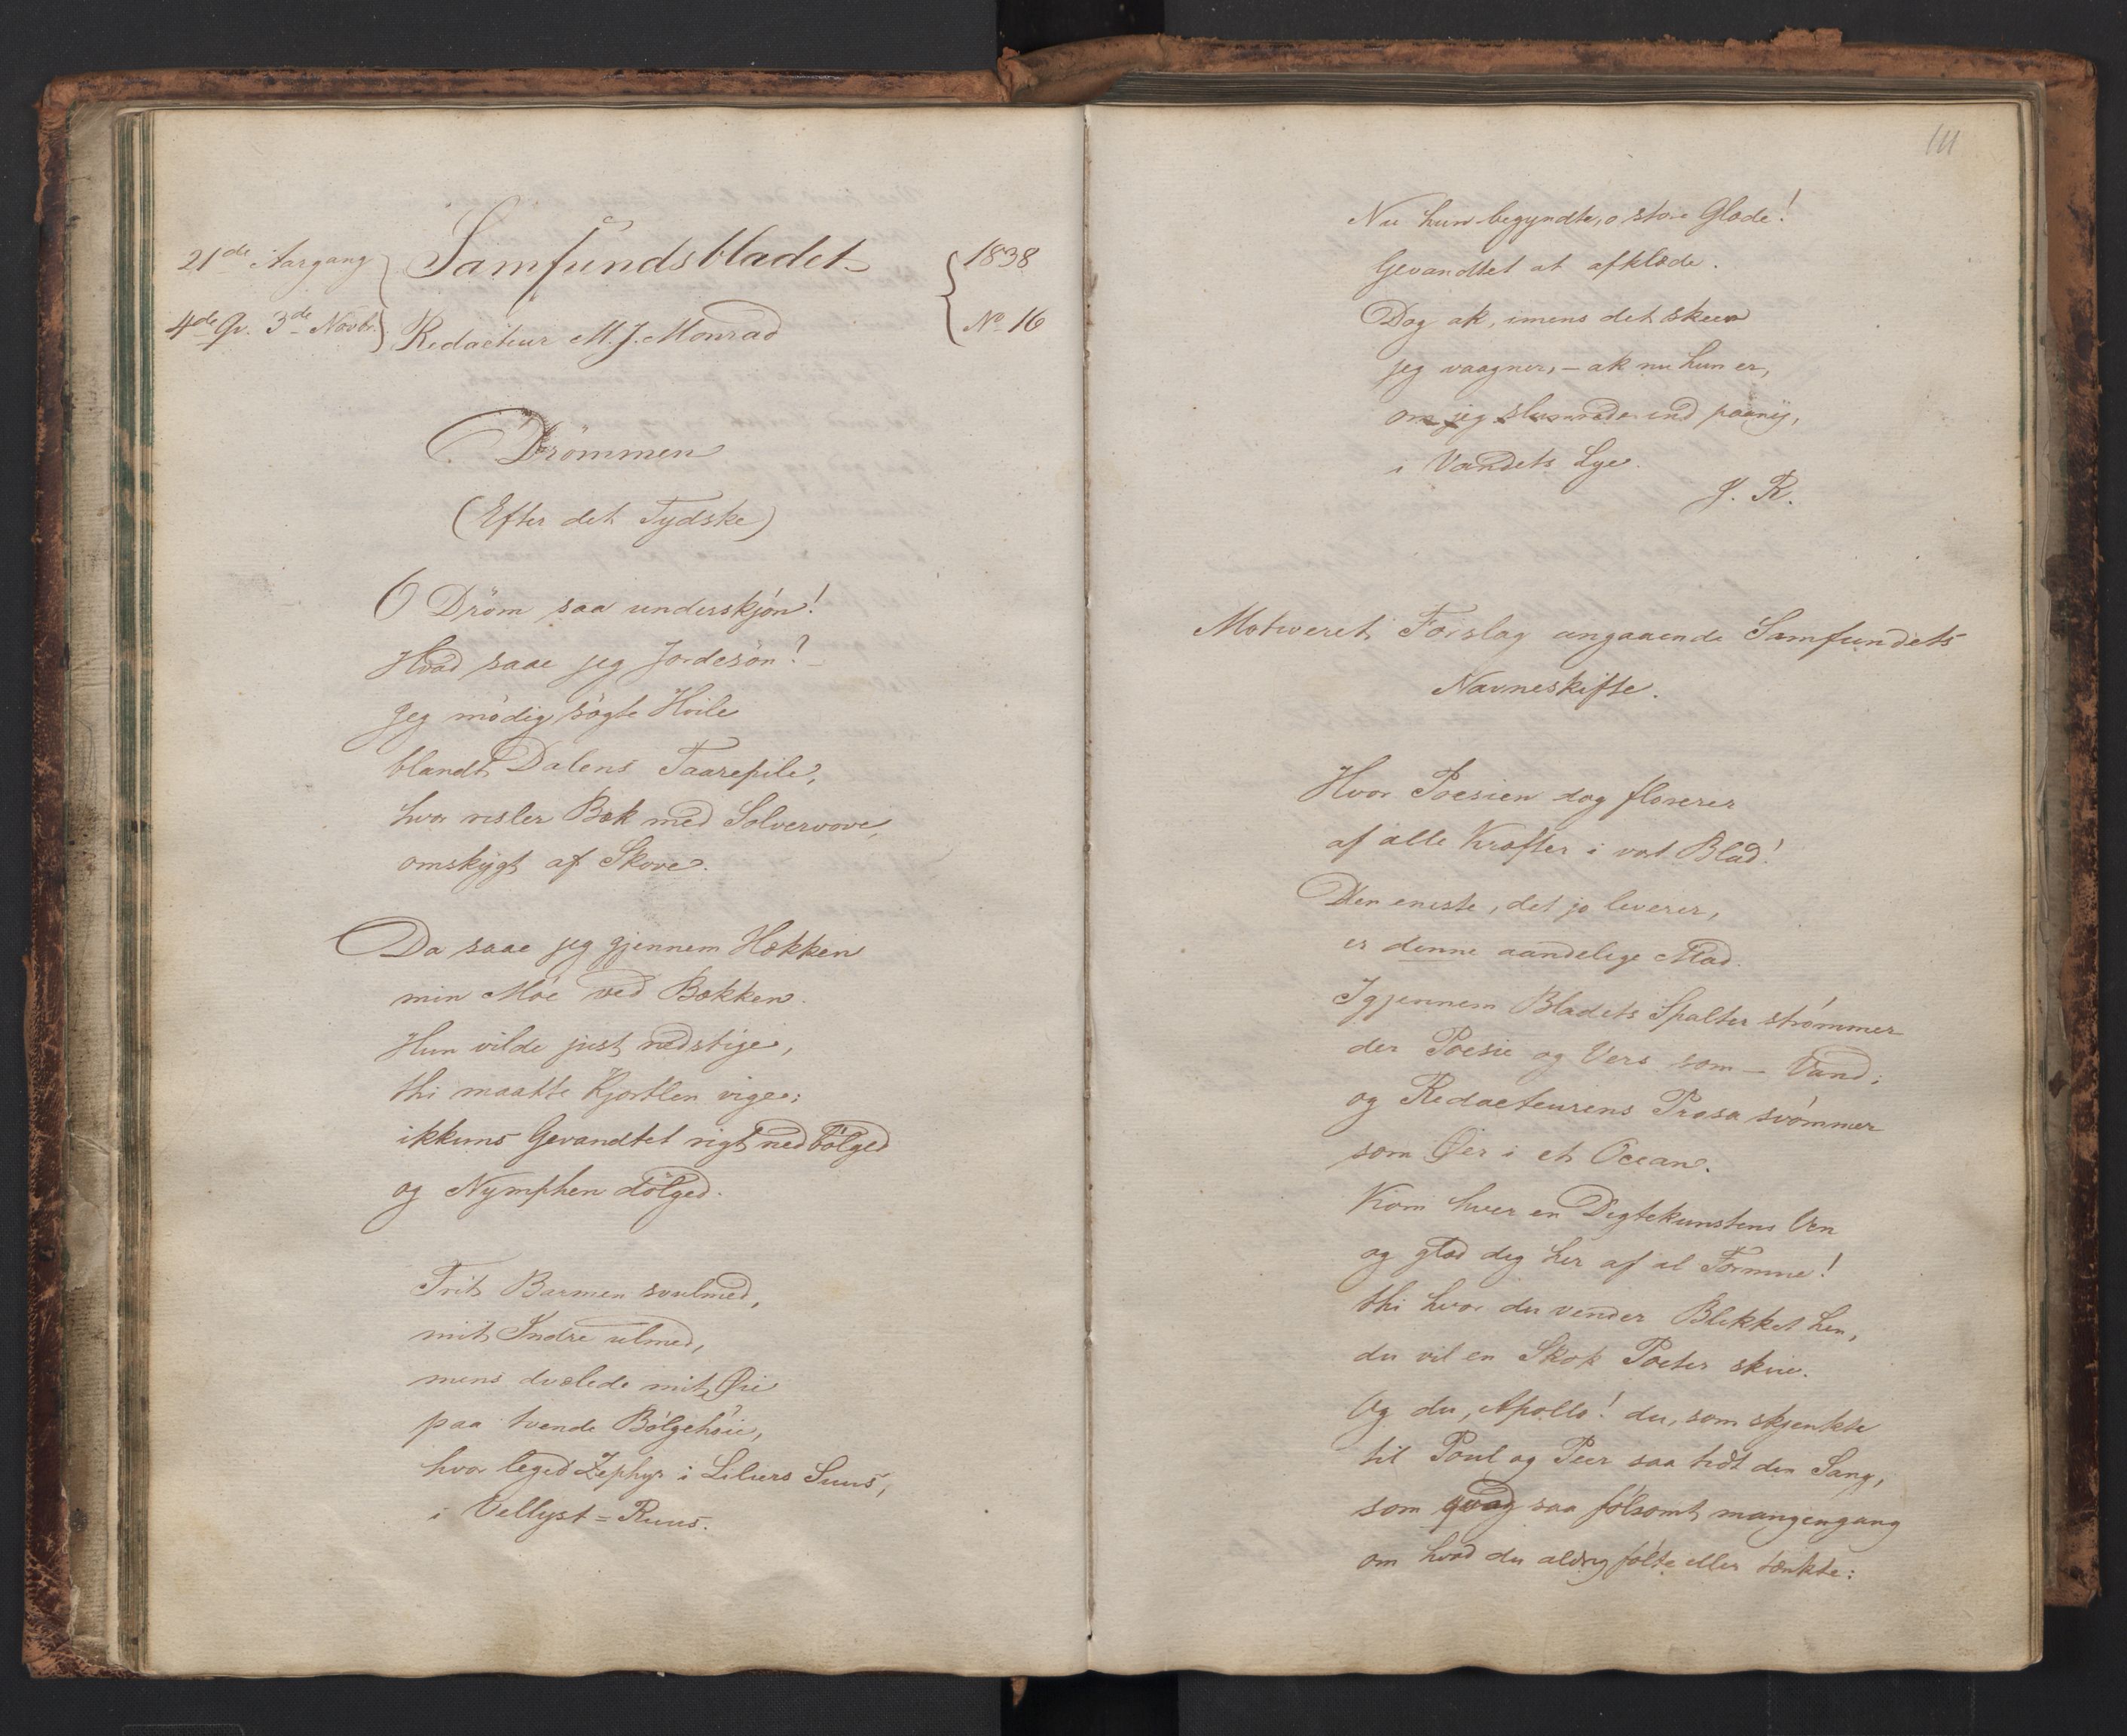 21de Aargang
4de Qv. 3de Novbr.
Samfundsbladet
Redacteur M. J. Monrad
1838
No 16
Drömmen
(Efter det Tydske)
O Dröm saa underskjön!
Hvad saae jeg Jordesön? –
Jeg mödig sögte Hvile
blandt Dalens Taarepile,
hvor risler Bæk med Sølvervove,
omskygt af Skove.
Da saae jeg gjennem Hækken
min Möe ved Bækken.
Hun vilde just nedstige,
thi maatte Kjortlen vige;
ikkuns Gevandtet rigt nedbölged
og Nymphen dölged.
Frit Barmen svulmed,
mit Indre ulmed,
mens dvælede mit Øie
paa tvende Bölgehöie,
hvor leged Zephyr i Liliers Suus,
i Vellyst=Ruus.
111
Nu hun begyndte, o store Glæde!
Gevandtet at afklæde.
Dog ak, imens det skeer
jeg vaagner, – ak nu hun er,
om jeg slumrede ind paany,
i Vandets Lye.
J. R.
Motiveret Forslag angaaende Samfundets
Navneskifte.
Hvor Poesien dog florerer
af alle Kræfter i vort Blad!
Den eneste, det jo leverer,
er denne aandelige Mad.
Igjennem Bladets Spalter strömmer
der Poesie og Vers som – Vand;
og Redacteurens Prosa svömmer
som Øer i et Ocean.
Kom hver en Digtekunstens Ven
og glæd dig her af al Formue!
thi hvor du vender Blikket hen,
du vil en Skok Poeter skue.
Og du, Apollo! du, som skjenkte
til Poul og Peer saa tidt din Sang,
som qvad saa fölsomt mangengang
om hvad du aldrig fölte eller tænkte: